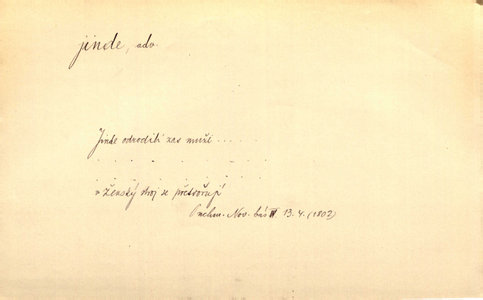 jinde, adv.
Jinde odrodilí zas muži . . . . .
. . . . . . .
. . . . . . .
v ženský stroj se přetvořují
Puchm. Nov. bás II 13. 4. (1802)